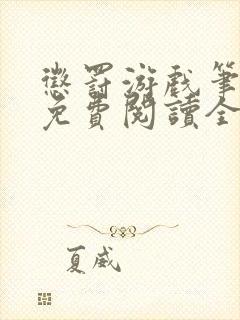 懲罰游戲筆
免費閱讀全
夏威